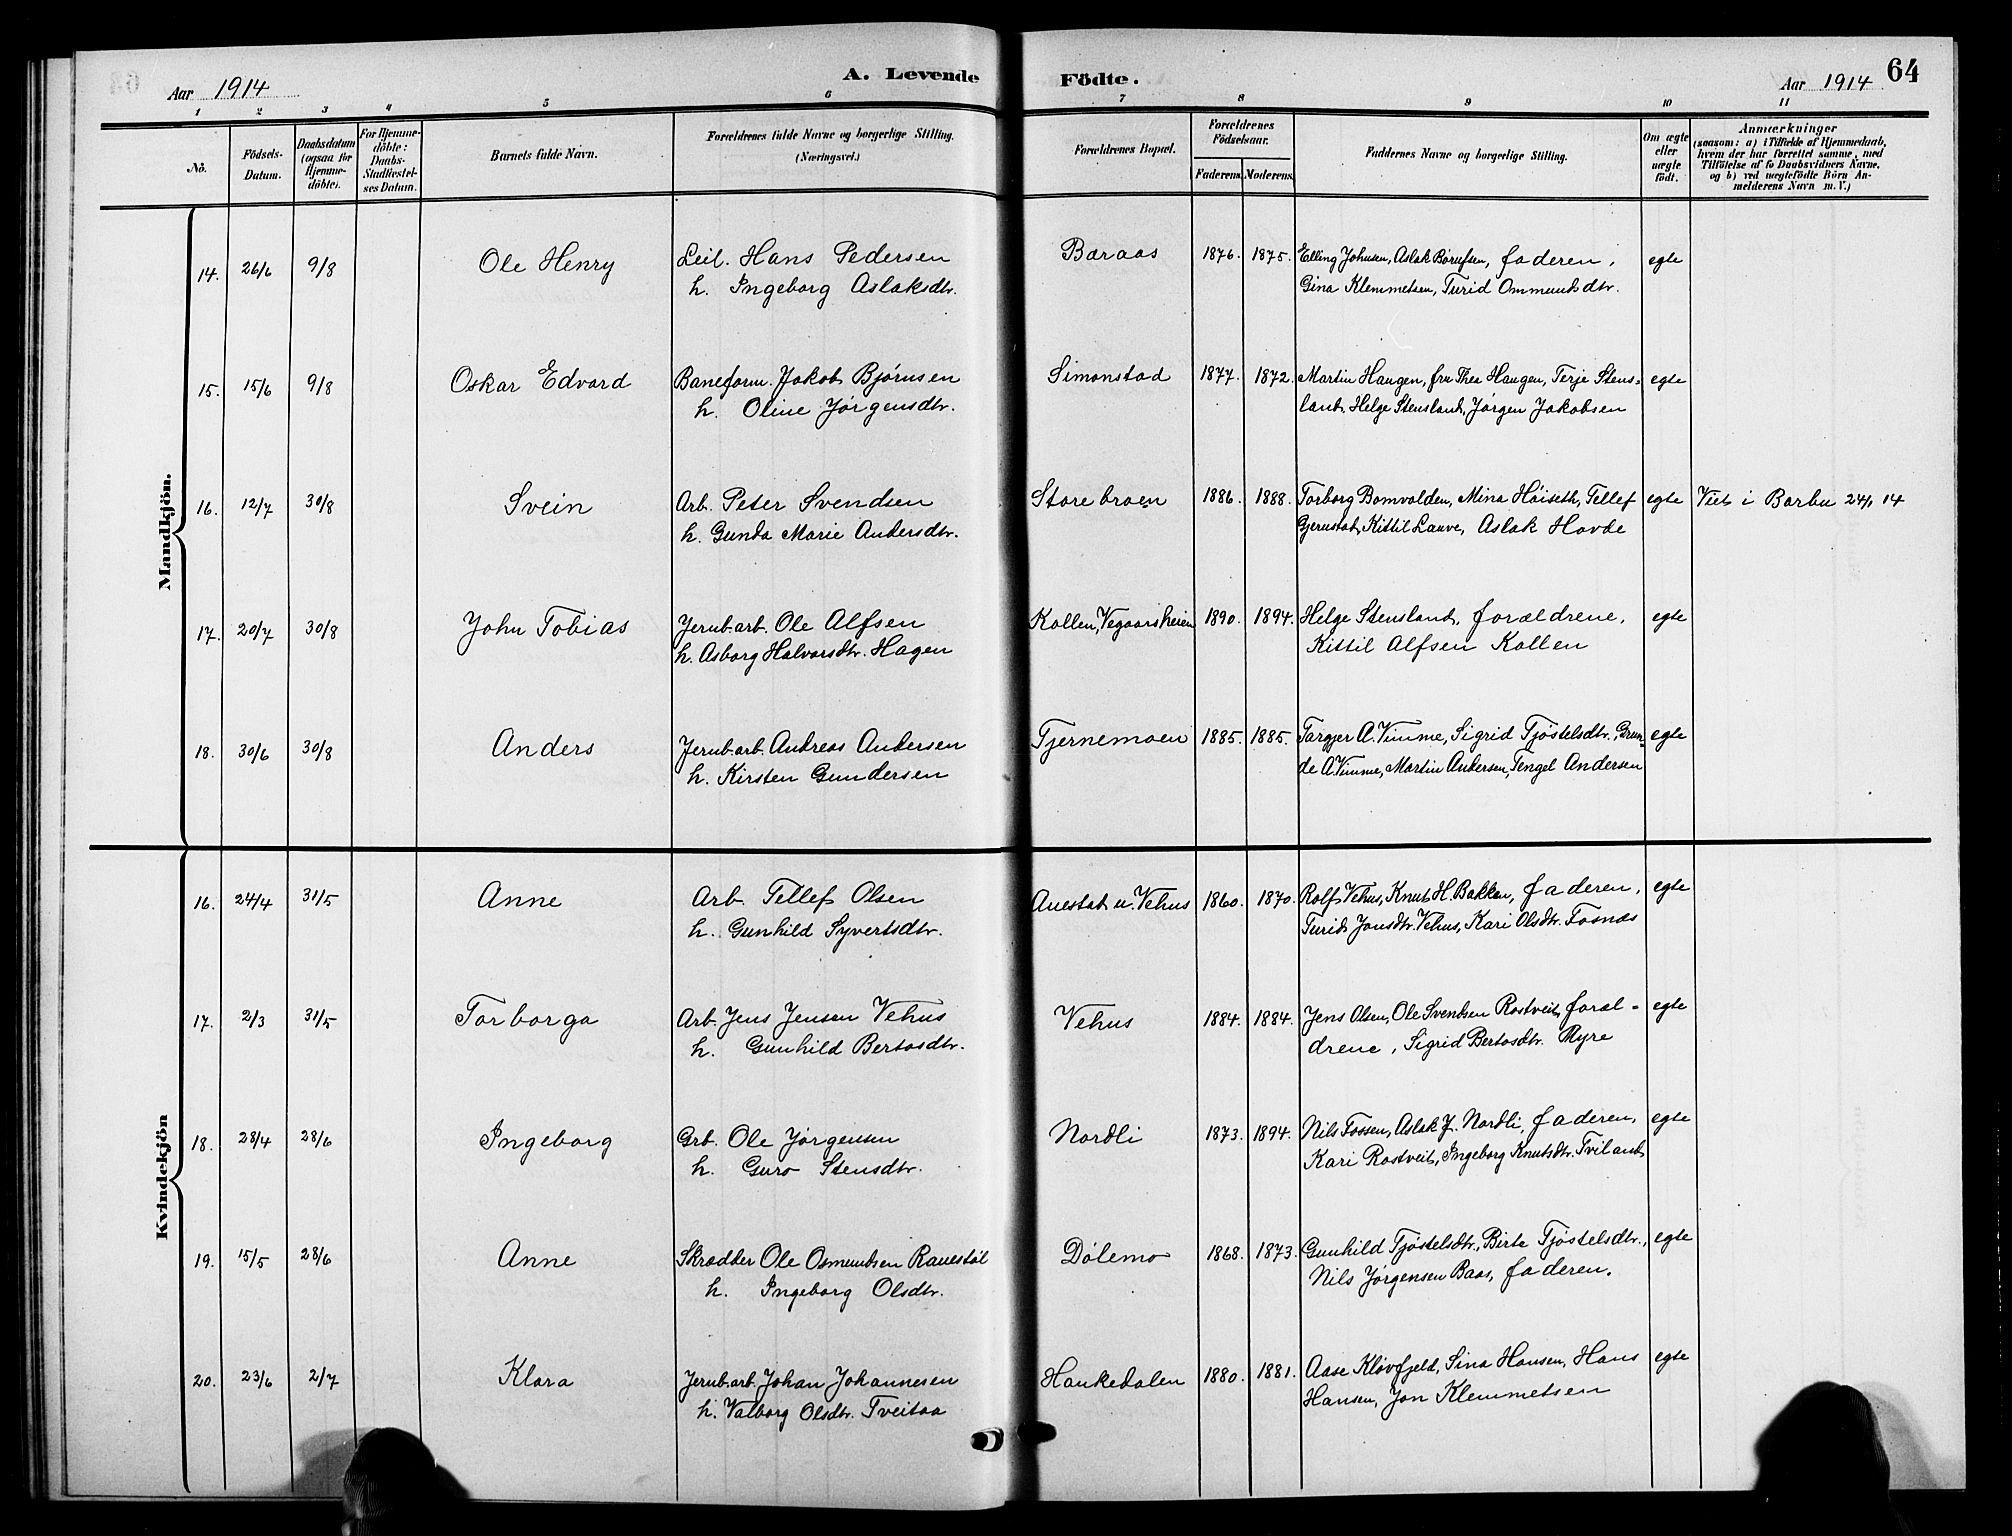 64
Aar 1914 A. Levende Födte. Aar 1914
1 2 3 4 5 6 7 8 9 10 11
No. Födsels-Datum. Daabsdatum (ogsaa for Hjemme-döbte). For Hjemme-döbte: Daabs-Stadfæstel-ses Datum. Barnets fulde Navn. Forældrenes fulde Navne og borgerlige Stilling. (Næringsvei.) Forældrenes Bopæl. Forældrenes Födselsaar. Faderens. Moderens. Faddernes Navne og borgerlige Stilling. Om ægte eller uægte födt. Anmærkninger (saasom: a) i Tilfælde af Hjemmedaab, hvem der har forrettet samme, med Tilföielse af to Daabsvidners Navne, og b) ved uægtefödte Börn An-melderens Navn m. V.)
Mandkjön.
14. 26/6 9/8 Ole Henry Leil. Hans Pedersen Baraas 1876. 1875. Elling Johnsen, Aslak Børufsen, faderen, egte
h. Ingeborg Aslaksdtr. Gina Klemmetsen, Turid Ommundsdtr.
15. 15/6 9/8 Oskar Edvard Baneform. Jakob Bjørnsen Simonstad 1877. 1872. Martin Haugen, fru Thea Haugen, Terje Stens- egte
h. Oline Jørgensdtr. land, Helge Stensland, Jørgen Jakobsen
16. 12/7 30/8 Svein Arb. Peter Svendsen Storebroen 1886. 1888. Torborg Bomvolden, Mina Høiseth, Tellef egte Viet i Barbu 24/1 14
h. Gunda Marie Andersdtr. Gjerustad, Kittil Lauve, Aslak Hovde
17. 20/7 30/8 John Tobias Jernb.arb. Ole Alfsen Kollen, Vegaarsheien 1890. 1894. Helge Stensland, forældrene, egte
h. Asborg Halvorsdtr. Hagen Kittil Alfsen Kollen
18. 30/6 30/8 Anders Jernb.arb. Andreas Andersen Tjernemoen 1885. 1885. Targjer A. Vimme, Sigrid Tjøstelsdtr., Grun- egte
h. Kirsten Gundersen de A. Vimme, Martin Andersen, Tengel Andersen
Kvindekjön
16. 24/4 31/5 Anne Arb. Tellef Olsen Auestad u. Vehus 1860. 1870. Rolf Vehus, Knut H. Bakken, faderen, egte
h. Gunhild Syvertsdtr. Turid Jonsdtr. Vehus, Kari Olsdtr. Fosnæs
17. 2/3 31/5 Torborga Arb. Jens Jensen Vehus Vehus 1884. 1884. Jens Olsen, Ole Svendsen Rostveit, foræl- egte
h. Gunhild Bertosdtr. drene, Sigrid Bertosdtr. Myre
18. 28/4 28/6 Ingeborg Grb. Ole Jørgensen Nordli 1873. 1894. Nils Fossen, Aslak J. Nordli, faderen, egte
h. Guro Stensdtr. Kari Rostveit, Ingeborg Knutsdtr. Tviland
19. 15/5 28/6 Anne Skrædder Ole Osmundsen Rauestøl Dølemo 1868. 1873. Gunhild Tjøstelsdtr., Birte Tjøstelsdtr., egte
h. Ingeborg Olsdtr. Nils Jørgensen Baas, faderen.
20. 23/6 2/7 Klara Jernb.arb. Johan Johannesen Haukedalen 1880. 1881. Aase Kløvfjeld, Sina Hansen, Hans egte
h. Valborg Olsdtr. Tveitaa Hansen, Jon Klemmetsen